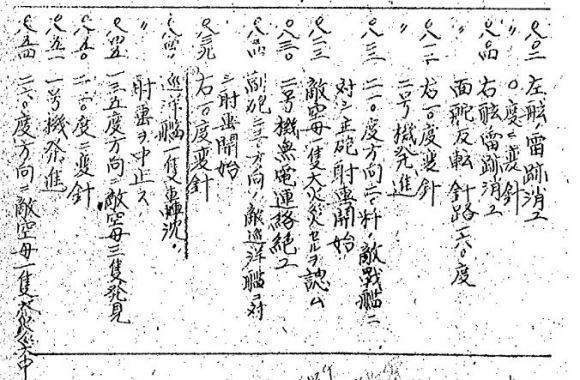 〇八〇二 左舷雷跡消ユ
〃 〇度ニ変針
〇八〇四 右舷雷跡消ユ
〃 一面舵反転針路二六〇度
〇八一二 右一〇度変針
〃 二号機発進
〇八一三 二一〇度方向二〇粁敵戦艦ニ
対シ主砲射撃開始
〇八二三 敵空母一隻大火災セルヲ認ム
〇八三〇 二号機無電連絡絶ユ
副砲 方向ノ敵巡洋艦ニ対
シ射撃開始
〇八三九 右一〇度変針
巡洋艦一隻轟沈
〃 射撃ヲ中止ス
〇八四五 一三五度方向敵空母三隻発見
〇八五〇 度ニ変針
〇八五一 一号機発進
〇八五四 二六〇度方向ニ敵空母一隻大火災中